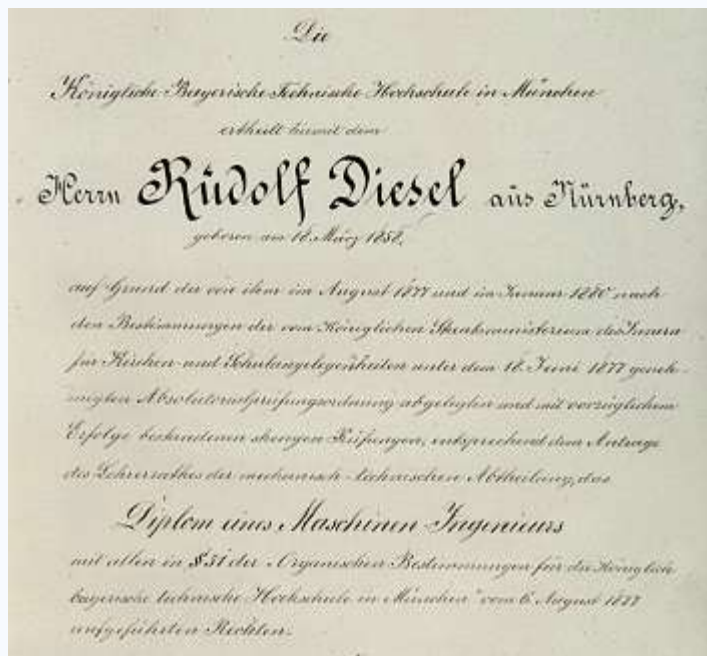 Die
Königliche Bayerische Technische Hochschule in München
ertheilt hiermit dem
Herrn Rudolf Diesel aus Nürnberg,
geboren am 18. März 1858,
auf Grund der von ihm im August 1877 und im Januar 1880 nach
den Bestimmungen der vom Königlichen Staatsministerium des Innern
für Kirchen- und Schulangelegenheiten unter dem 18. Juni 1877 geneh-
migten Absolutorialprüfungsordnung abgelegten und mit vorzüglichem
Erfolge bestandenen strengen Prüfungen, entsprechend dem Antrage
des Lehrerrathes der mechanisch-technischen Abtheilung, das
Diplom eines Maschinen-Ingenieurs
mit allen in § 31 der „Organischen Bestimmungen für die Königlich
bayerische technische Hochschule in München" vom 6. August 1877
aufgeführten Rechten.